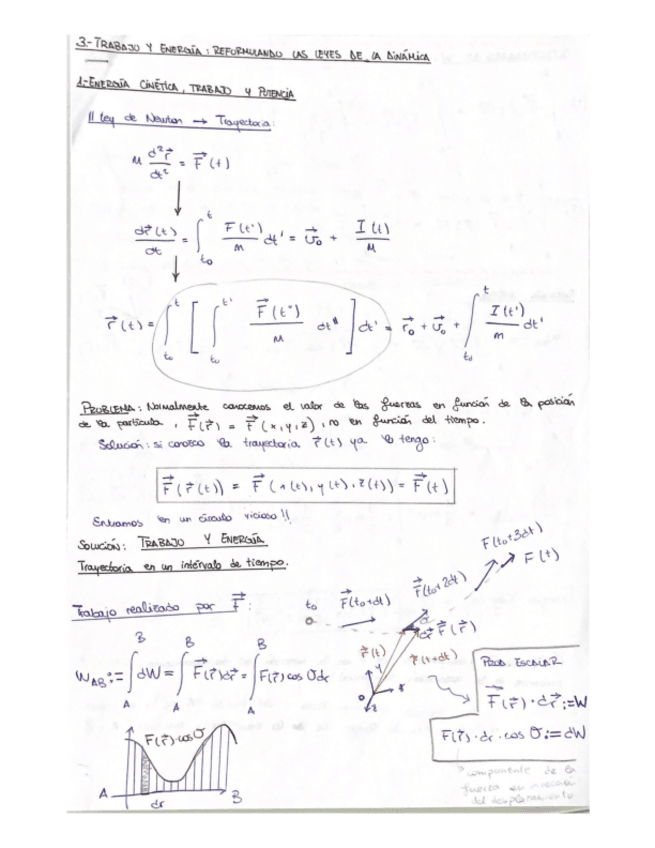 3.- TRABAJO Y ENERGÍA: REFORMULANDO LAS LEYES DE LA DINÁMICA
1.- ENERGÍA CINÉTICA, TRABAJO Y POTENCIA
II Ley de Newton → Trayectoria:
M d²r⃗/dt² = F⃗(t)
dr⃗(t)/dt = ∫_{t₀}^{t} F(t')/m dt' = v⃗₀ + I(t)/M
r⃗(t) = ∫_{t₀}^{t} [ ∫_{t₀}^{t'} F⃗(t'')/M dt'' ] dt' = r⃗₀ + v⃗₀ + ∫_{t₀}^{t} I(t')/m dt'
PROBLEMA: Normalmente conocemos el valor de las fuerzas en función de la posición
de la partícula, F⃗(r⃗) = F⃗(x,y,z), no en función del tiempo.
Solución: si conozco la trayectoria r⃗(t) ya lo tengo:
F⃗(r⃗(t)) = F⃗(x(t), y(t), z(t)) = F⃗(t)
Entramos en un círculo vicioso!!
SOLUCIÓN: TRABAJO Y ENERGÍA
Trayectoria en un intérvalo de tiempo.
F(t₀+3dt)
F(t)
F⃗(t₀+2dt)
Trabajo realizado por F⃗:
t₀
F⃗(t₀+dt)
dr⃗ F⃗(r⃗)
r⃗(t)
r⃗(t+dt)
Y
O
X
Z
W_AB := ∫_A^B dW = ∫_A^B F⃗(r⃗)dr⃗ = ∫_A^B F(r⃗) cos θ dr
PROD. ESCALAR
F⃗(r⃗) · dr⃗ := W
F(r⃗) · dr · cos θ := dW
F(r⃗)·cosθ
A
dr
B
componente de la
fuerza en
del desplazamiento